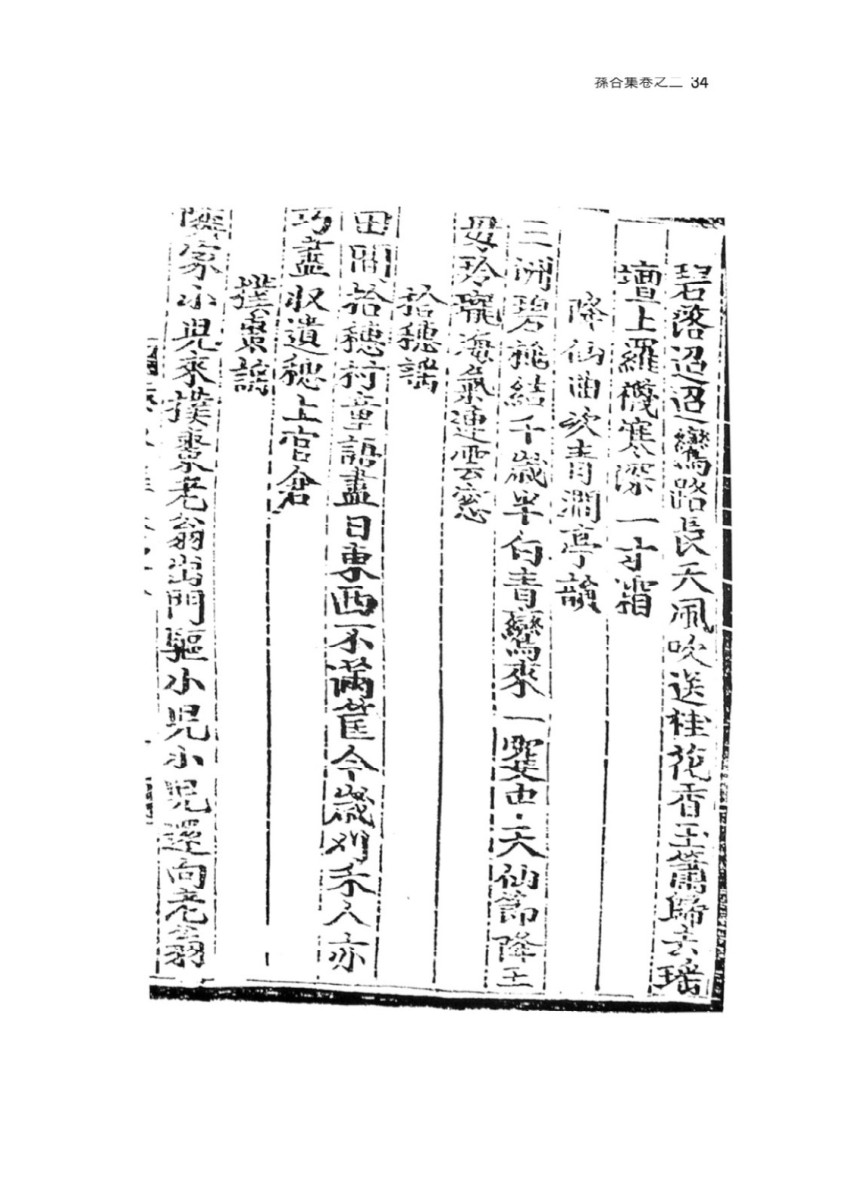 蓀谷集卷之二 34
碧落迢迢鸞路長天風吹送桂花香玉簫歸去瑤
壇上羅襪寒深一寸霜
降仙曲次青澗亭韻
三洞碧桃結千歲半句青鸞來一雙中天仙節降王
母玲瓏海氣連雲窓
拾穗謠
田間拾穗村童語盡日東西不滿筐今歲刈禾人亦
巧盡収遺穗上官倉
撲棗謠
隣家小兒來撲棗老翁出門驅小兒小兒還向老翁